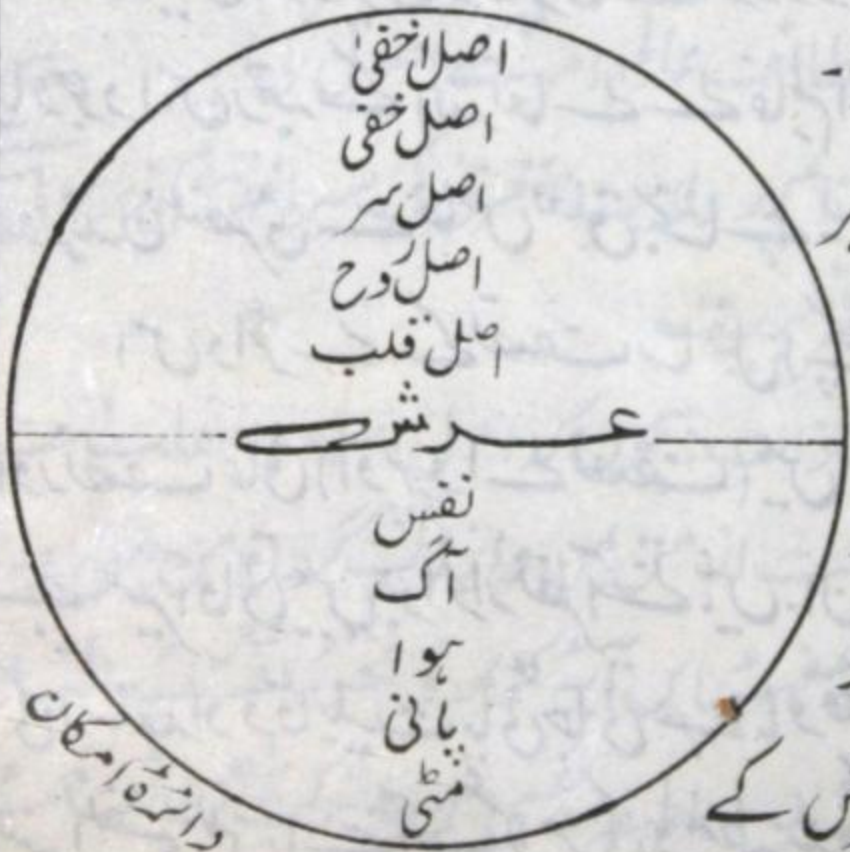 اصل اخفیٰ
اصل خفی
اصل سر
اصل روح
اصل قلب
عرش
نفس
آگ
ہوا
پانی
مٹی
دائرۂ امکان
کے